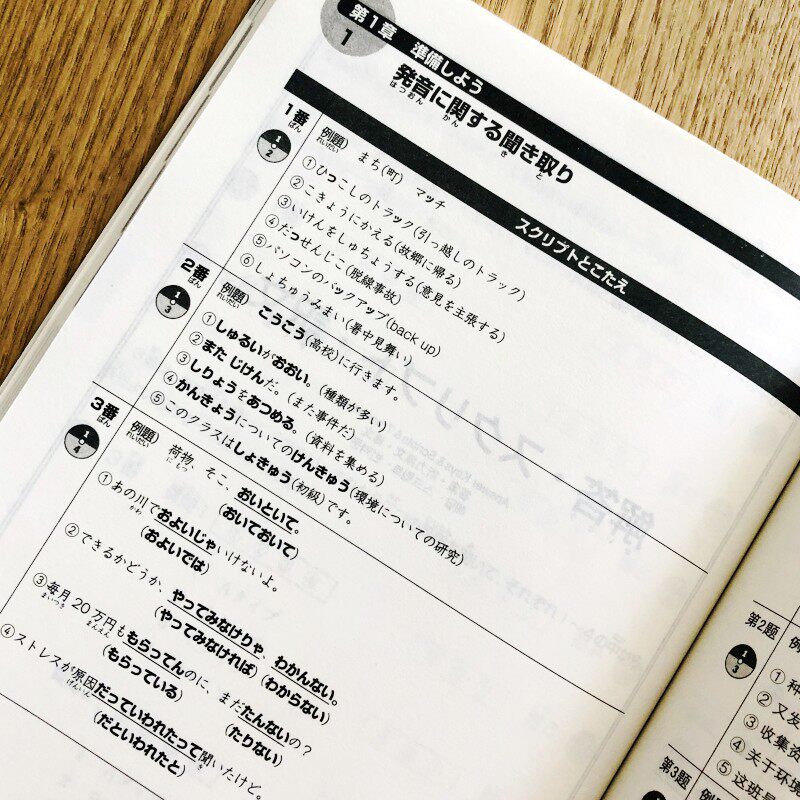 第1章 準備しよう
1
発音に関する聞き取り
はつおん かん き と
スクリプトとこたえ
1番
ばん
1
2
例題)
れいだい
まち(町) マッチ
①ひっこしのトラック(引っ越しのトラック)
②こきょうにかえる(故郷に帰る)
③いけんをしゅちょうする(意見を主張する)
④だっせんじこ(脱線事故)
⑤パソコンのバックアップ(back up)
⑥しょちゅうみまい(暑中見舞い)
2番
ばん
1
3
例題)
れいだい
こうこう(高校)に行きます。
①しゅるいがおおい。(種類が多い)
②また じけんだ。(また事件だ)
③しりょうをあつめる。(資料を集める)
④かんきょうについてのけんきゅう(環境についての研究)
⑤このクラスはしょきゅう(初級)です。
3番
ばん
1
4
例題)
れいだい
荷物、そこ、おいといて。
にもつ
(おいておいて)
①あの川でおよいじゃいけないよ。
かわ
(およいでは)
②できるかどうか、やってみなけりゃ、わかんない。
(やってみなければ) (わからない)
③毎月20万円ももらってんのに、まだたんないの?
まいつき まんえん
(もらっている) (たりない)
④ストレスが原因だっていわれたって聞いたけど。
げんいん き
(だといわれたと)
第2题
1
3
例
① 种
② 又发
③ 收集资
④ 关于环境
⑤ 这班是
第3题
例